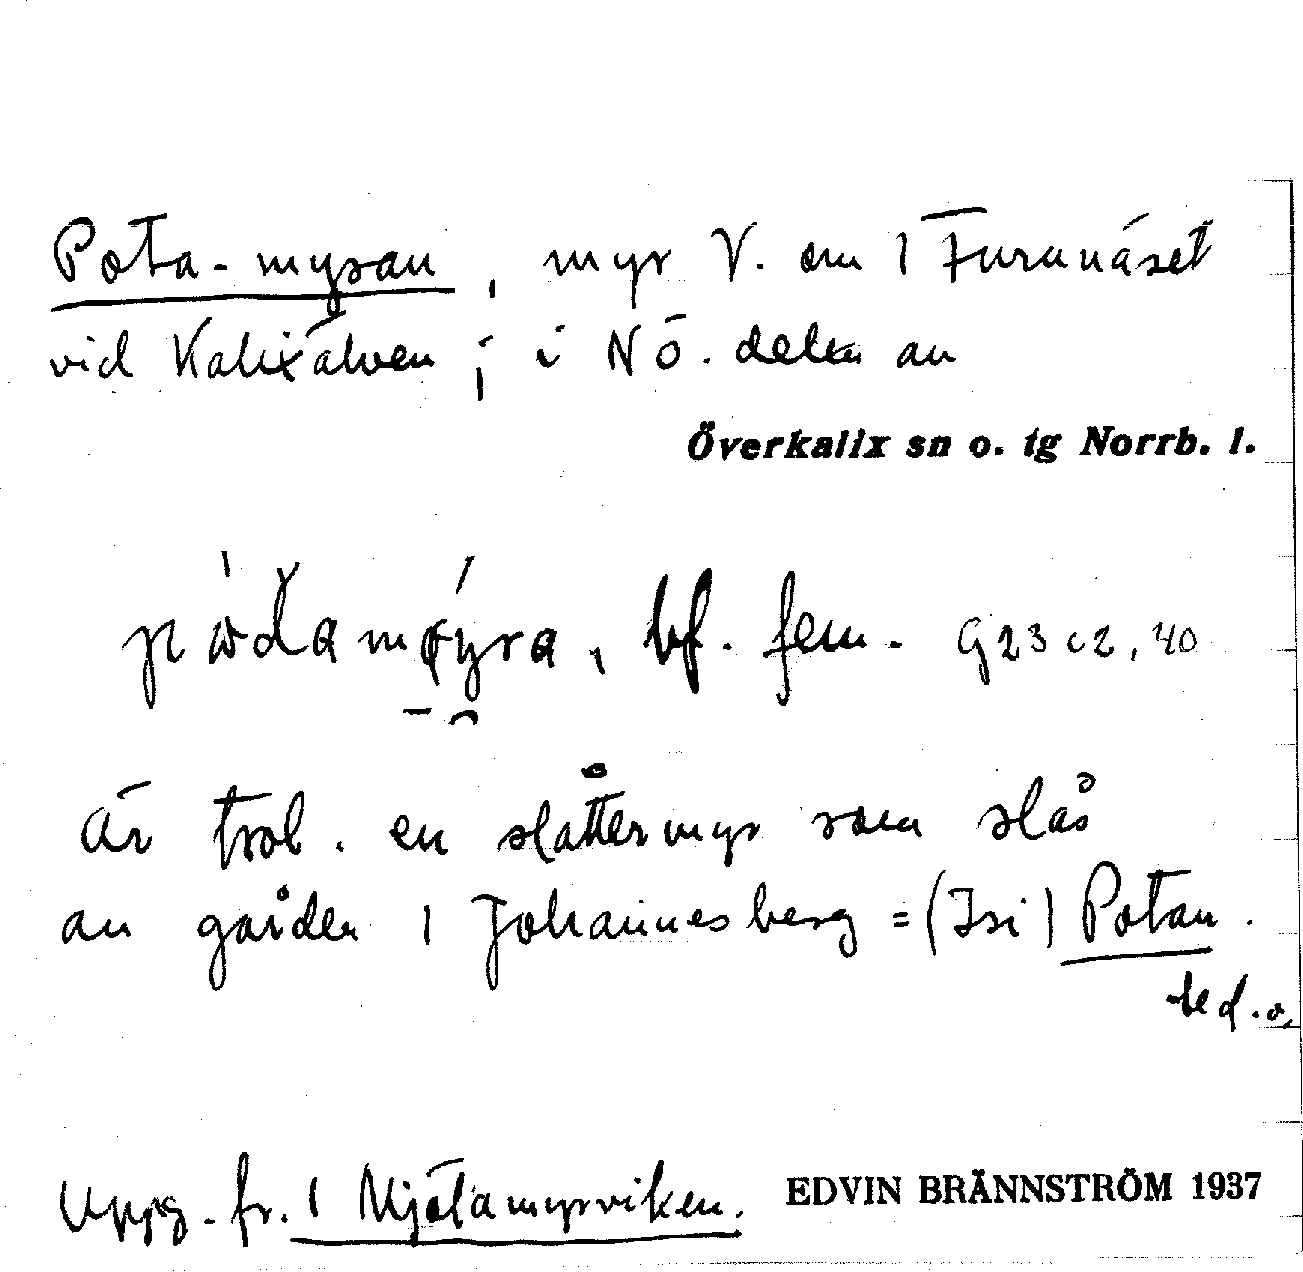 Pota-myran, myr V. om 1 Furunäset
vid Kalixälven; i NÖ. delen av
Överkalix sn o. tg Norrb. l.
bf. fem. G23 c2, 40
är trol. en slåttermyr som slås
av gården 1 Johannesberg = (Isi) Potan.
Uppg. fr. 1 Mjölamyrviken. EDVIN BRÄNNSTRÖM 1937